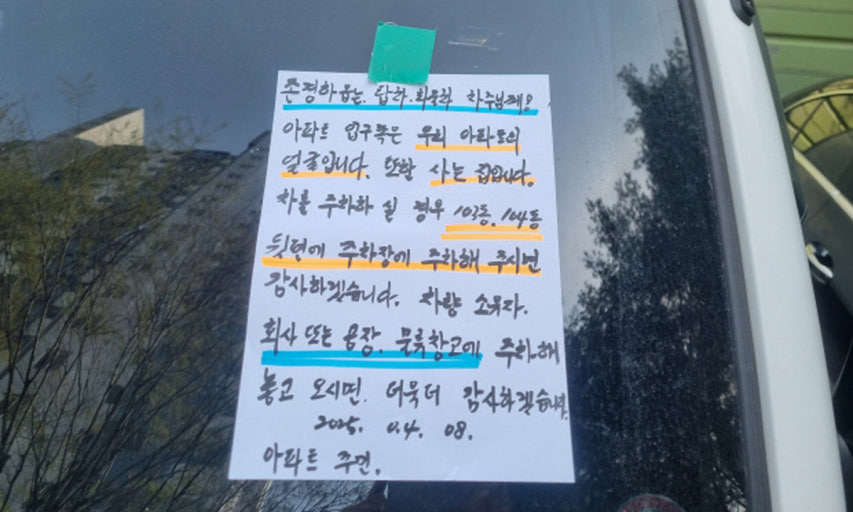 존경하옵는. 탑차. 화물차 차주님께!
아파트 입구쪽은 우리 아파트의
얼굴입니다. 또한 사는 집입니다.
차를 주차하 실 경우 103동. 104동
뒷편에 주차장에 주차해 주시면
감사하겠습니다. 차량 소유자.
회사 또는 공장. 물류창고에 주차해
놓고 오시면. 더욱더 감사하겠습니다.
2025. 0.4. 08.
아파트 주민.